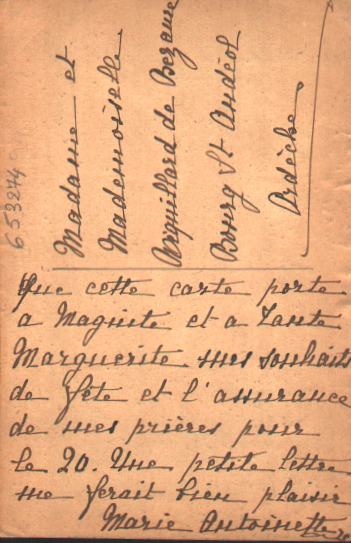 Madame et
Mademoiselle
Arguillard de Bezaure
Bourg St Andéol
Ardèche
653274
Que cette carte porte
a Maguite et a Tante
Marguerite mes souhaits
de fête et l'assurance
de mes prières pour
le 20. Une petite lettre
me ferait bien plaisir
Marie Antoinette